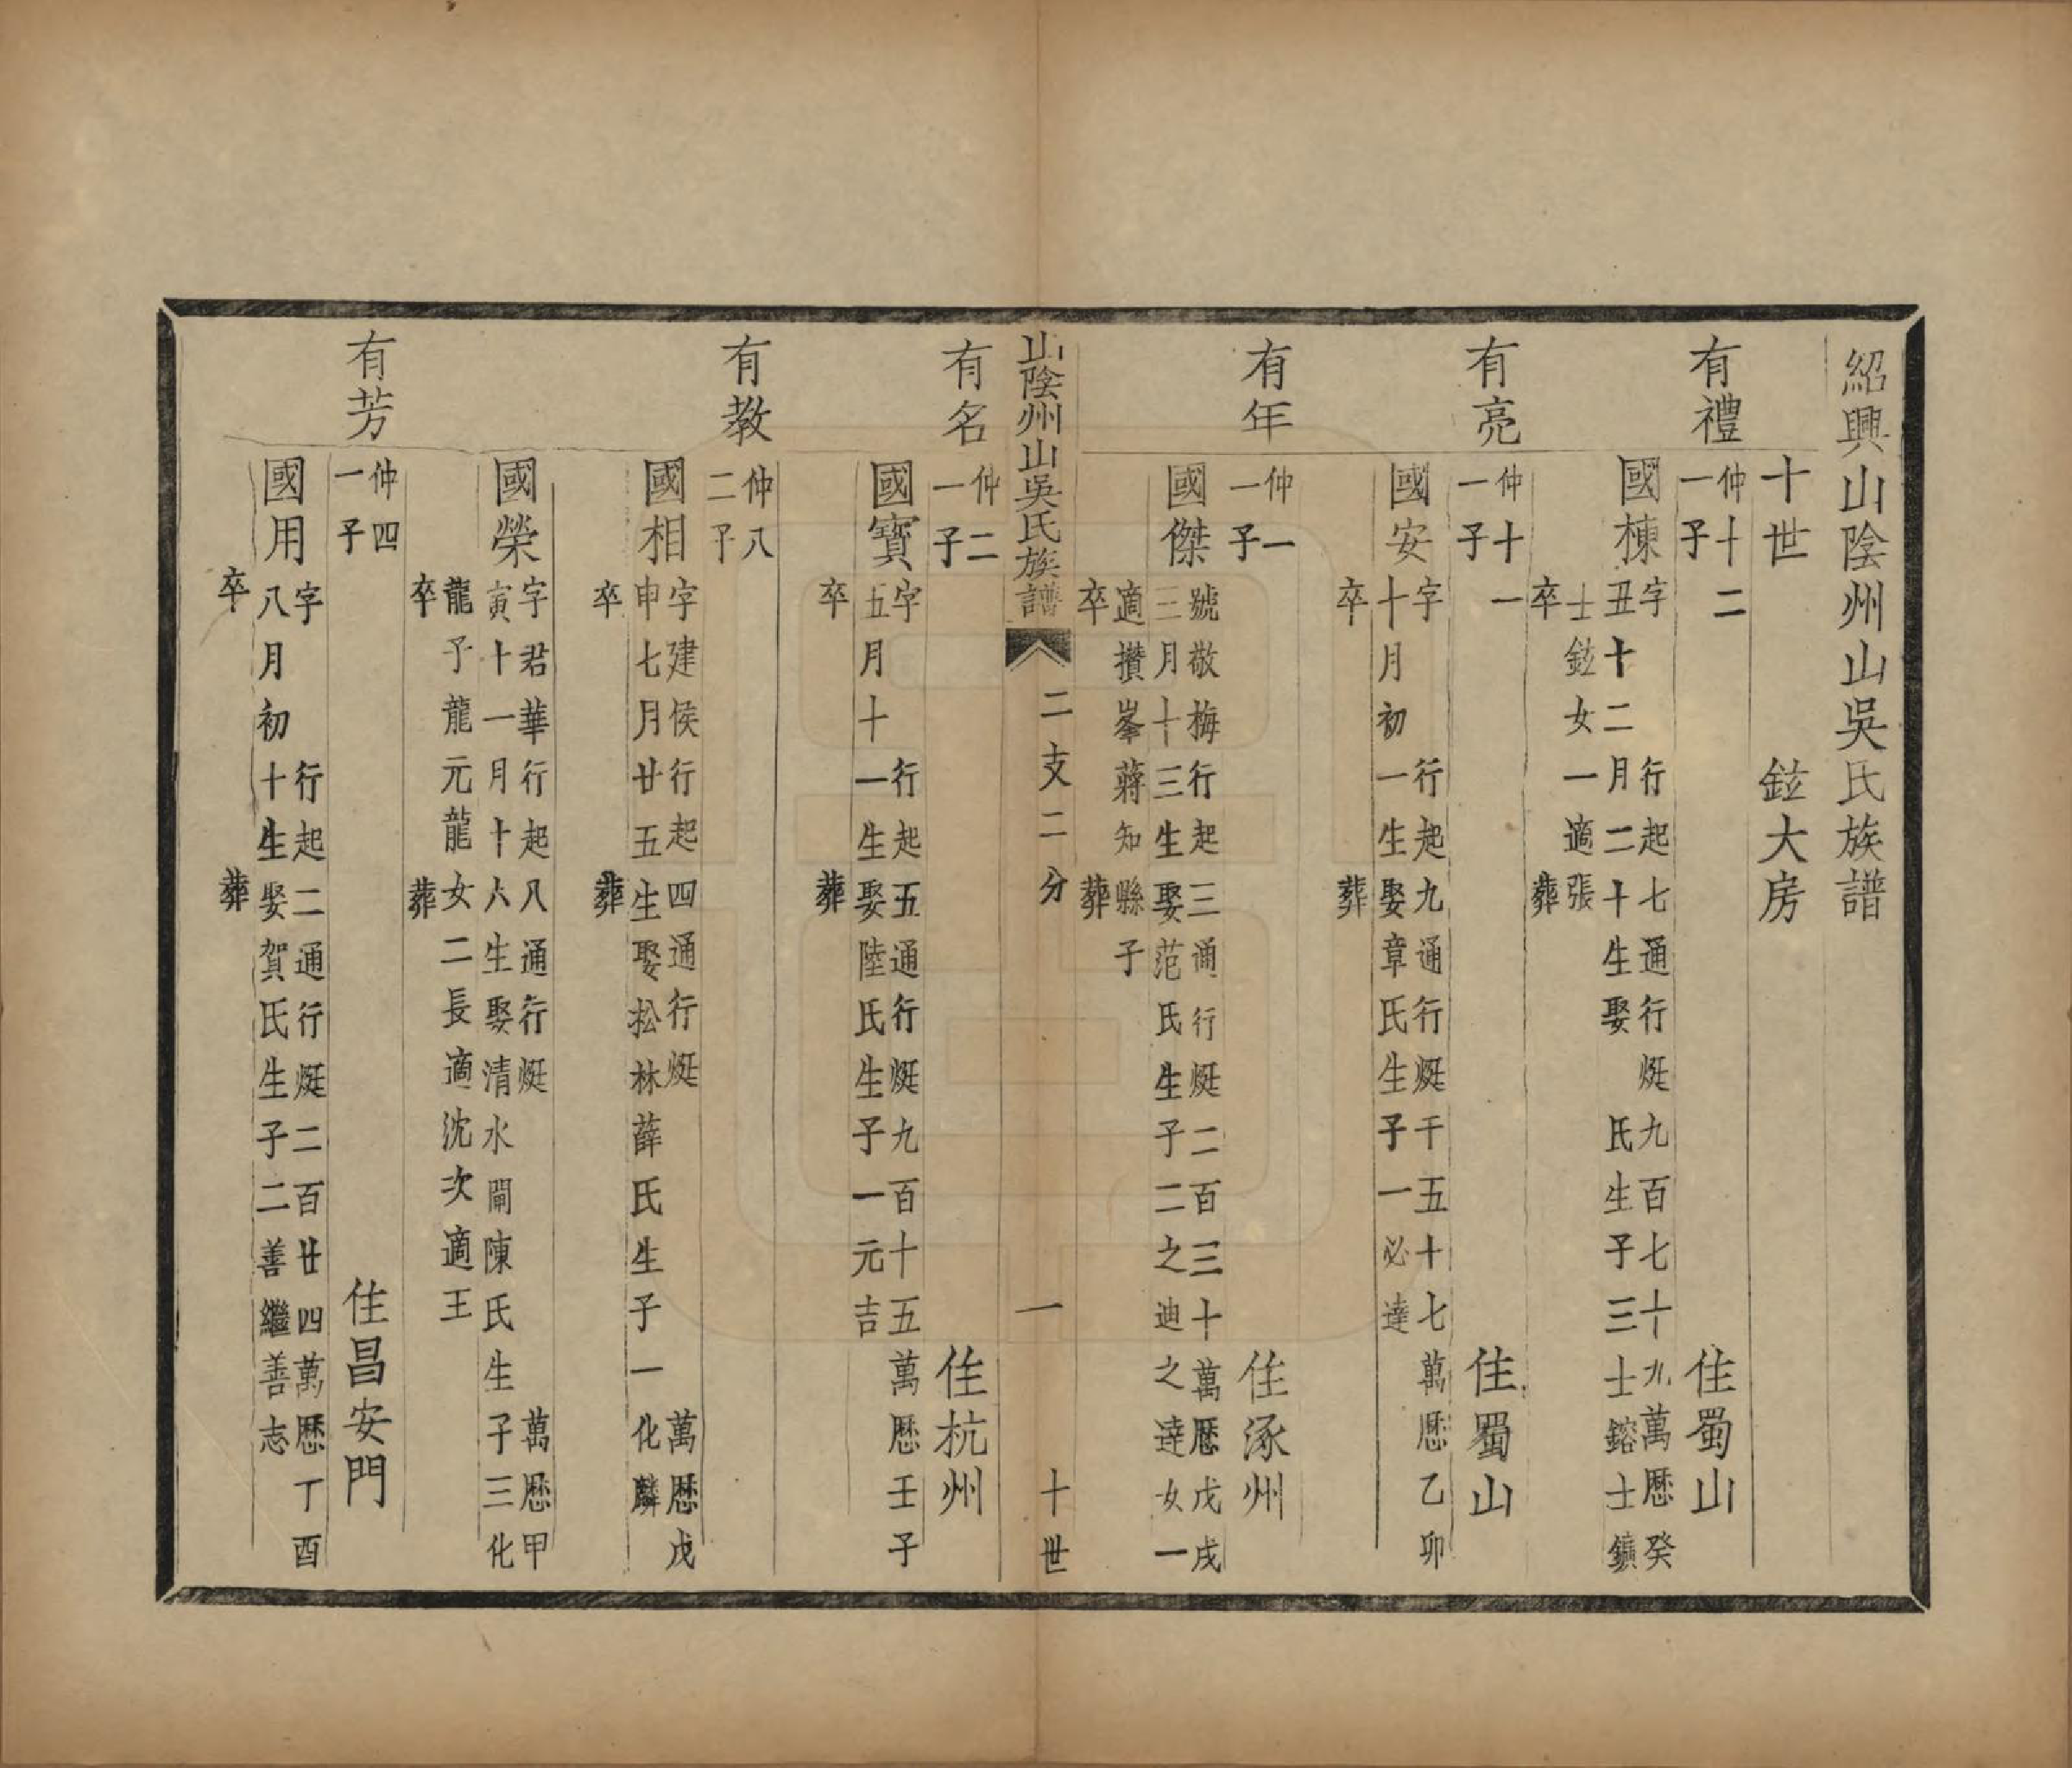 紹興山陰州山吳氏族譜
十世　鉝大房
有禮
仲十二
一子
住蜀山
國棟
字　行起七通行烶九百七十九萬歷癸
丑十二月二十生娶　氏生子三士鎔士鑛
士鉝女一適張
卒　葬
有亮
仲十
一子一
住蜀山
國安
字　行起九通行烶千五十七萬歷乙卯
十月初一生娶章氏生子一必達
卒　葬
有年
仲一
一子
住涿州
國傑
號敬梅行起三通行烶二百三十萬歷戊戌
三月十三生娶范氏生子二之迪之達女一
適攢峯蔣知縣子
卒　葬
山陰州山吳氏族譜　二支二分　一　十世
有名
仲二
一子
住杭州
國寶
字　行起五通行烶九百十五萬歷壬子
五月十一生娶陸氏生子一元吉
卒　葬
有教
仲八
二子
國相
字建侯行起四通行烶　萬歷戊
申七月廿五生娶松林薛氏生子一化麟
卒　葬
國榮
字君華行起八通行烶　萬歷甲
寅十一月十六生娶清水閘陳氏生子三化
龍予龍元龍女二長適沈次適王
卒　葬
有芳
仲四
一子
住昌安門
國用
字　行起二通行烶二百廿四萬歷丁酉
八月初十生娶賀氏生子二善繼善志
卒　葬